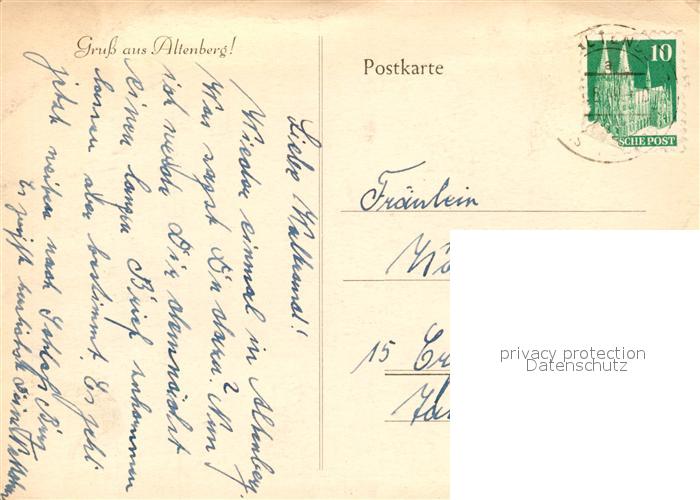 Gruß aus Altenberg!
Postkarte
10
SCHE POST
Liebe Waltraud!
Wieder einmal in Altenberg.
Was sagst Du dazu? Nun
ich werde Dir demnächst
einen langen Brief zukommen
lassen aber bestimmt. Es geht
jetzt weiter nach Schloß Burg
Es grüßt herzlichst Deine
Fräulein
15
privacy protection
Datenschutz